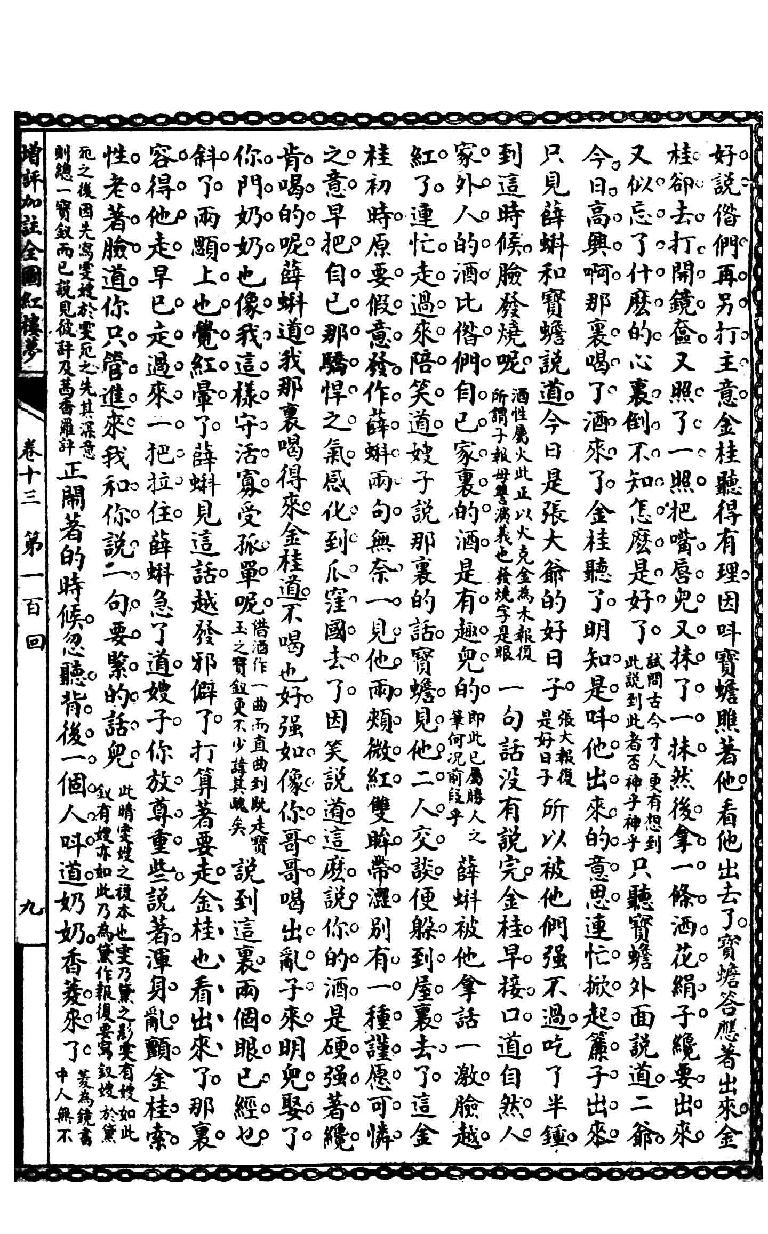 好說偺們再另打主意金桂聽得有理因呌寶蟾瞧著他看他出去了寶蟾答應著出來金
桂卻去打開鏡奩又照了一照把嘴唇兒又抹了一抹然後拿一條洒花絹子纔要出來
又似忘了什麽的心裏倒不知怎麽是好了試問古今才人更有想到此說到此者否神乎神乎只聽寶蟾外面說道二爺
今日高興啊那裏喝了酒來了金桂聽了明知是呌他出來的意思連忙掀起簾子出來
只見薛蝌和寶蟾說道今日是張大爺的好日子張大報復是好日子所以被他們强不過吃了半鍾
到這時候臉發燒呢酒性屬火此正以火克金為木報復所謂子報母讐演義也發燒字是眼一句話没有說完金桂早接口道自然人
家外人的酒比偺們自己家裏的酒是有趣兒的即此已屬勝人之筆何況前段乎薛蝌被他拿話一激臉越
紅了連忙走過來陪笑道嫂子說那裏的話寶蟾見他二人交談便躲到屋裏去了這金
桂初時原要假意發作薛蝌兩句無奈一見他兩頰微紅雙眸帶澀别有一種謹愿可憐
之意早把自己那驕悍之氣感化到爪窪國去了因笑說道這麽說你的酒是硬强著纔
肯喝的呢薛蝌道我那裏喝得來金桂道不喝也好强如像你哥哥喝出亂子來明兒娶了
你門奶奶也像我這樣守活寡受孤單呢借酒作一曲而直曲到馱走寶玉之寶釵更不少諱其醜矣說到這裏兩個眼已經乜
斜了兩顋上也覺紅暈了薛蝌見這話越發邪僻了打算著要走金桂也看出來了那裏
容得他走早已走過來一把拉住薛蝌急了道嫂子你放尊重些說著渾身亂顫金桂索
性老著臉道你只管進來我和你說二句要緊的話兒此晴雯嫂之複本也雯乃黛之影雯有嫂如此釵有嫂亦如此乃為黛作報復要寫釵嫂於黛
死之後因先寫雯嫂於雯死之先其深意則總一寶釵而已說見彼評及茜香羅評正閙著的時候忽聽背後一個人呌道奶奶香菱來了菱為鏡書中人無不
增評加註全圖紅樓夢 卷十三 第一百回 九